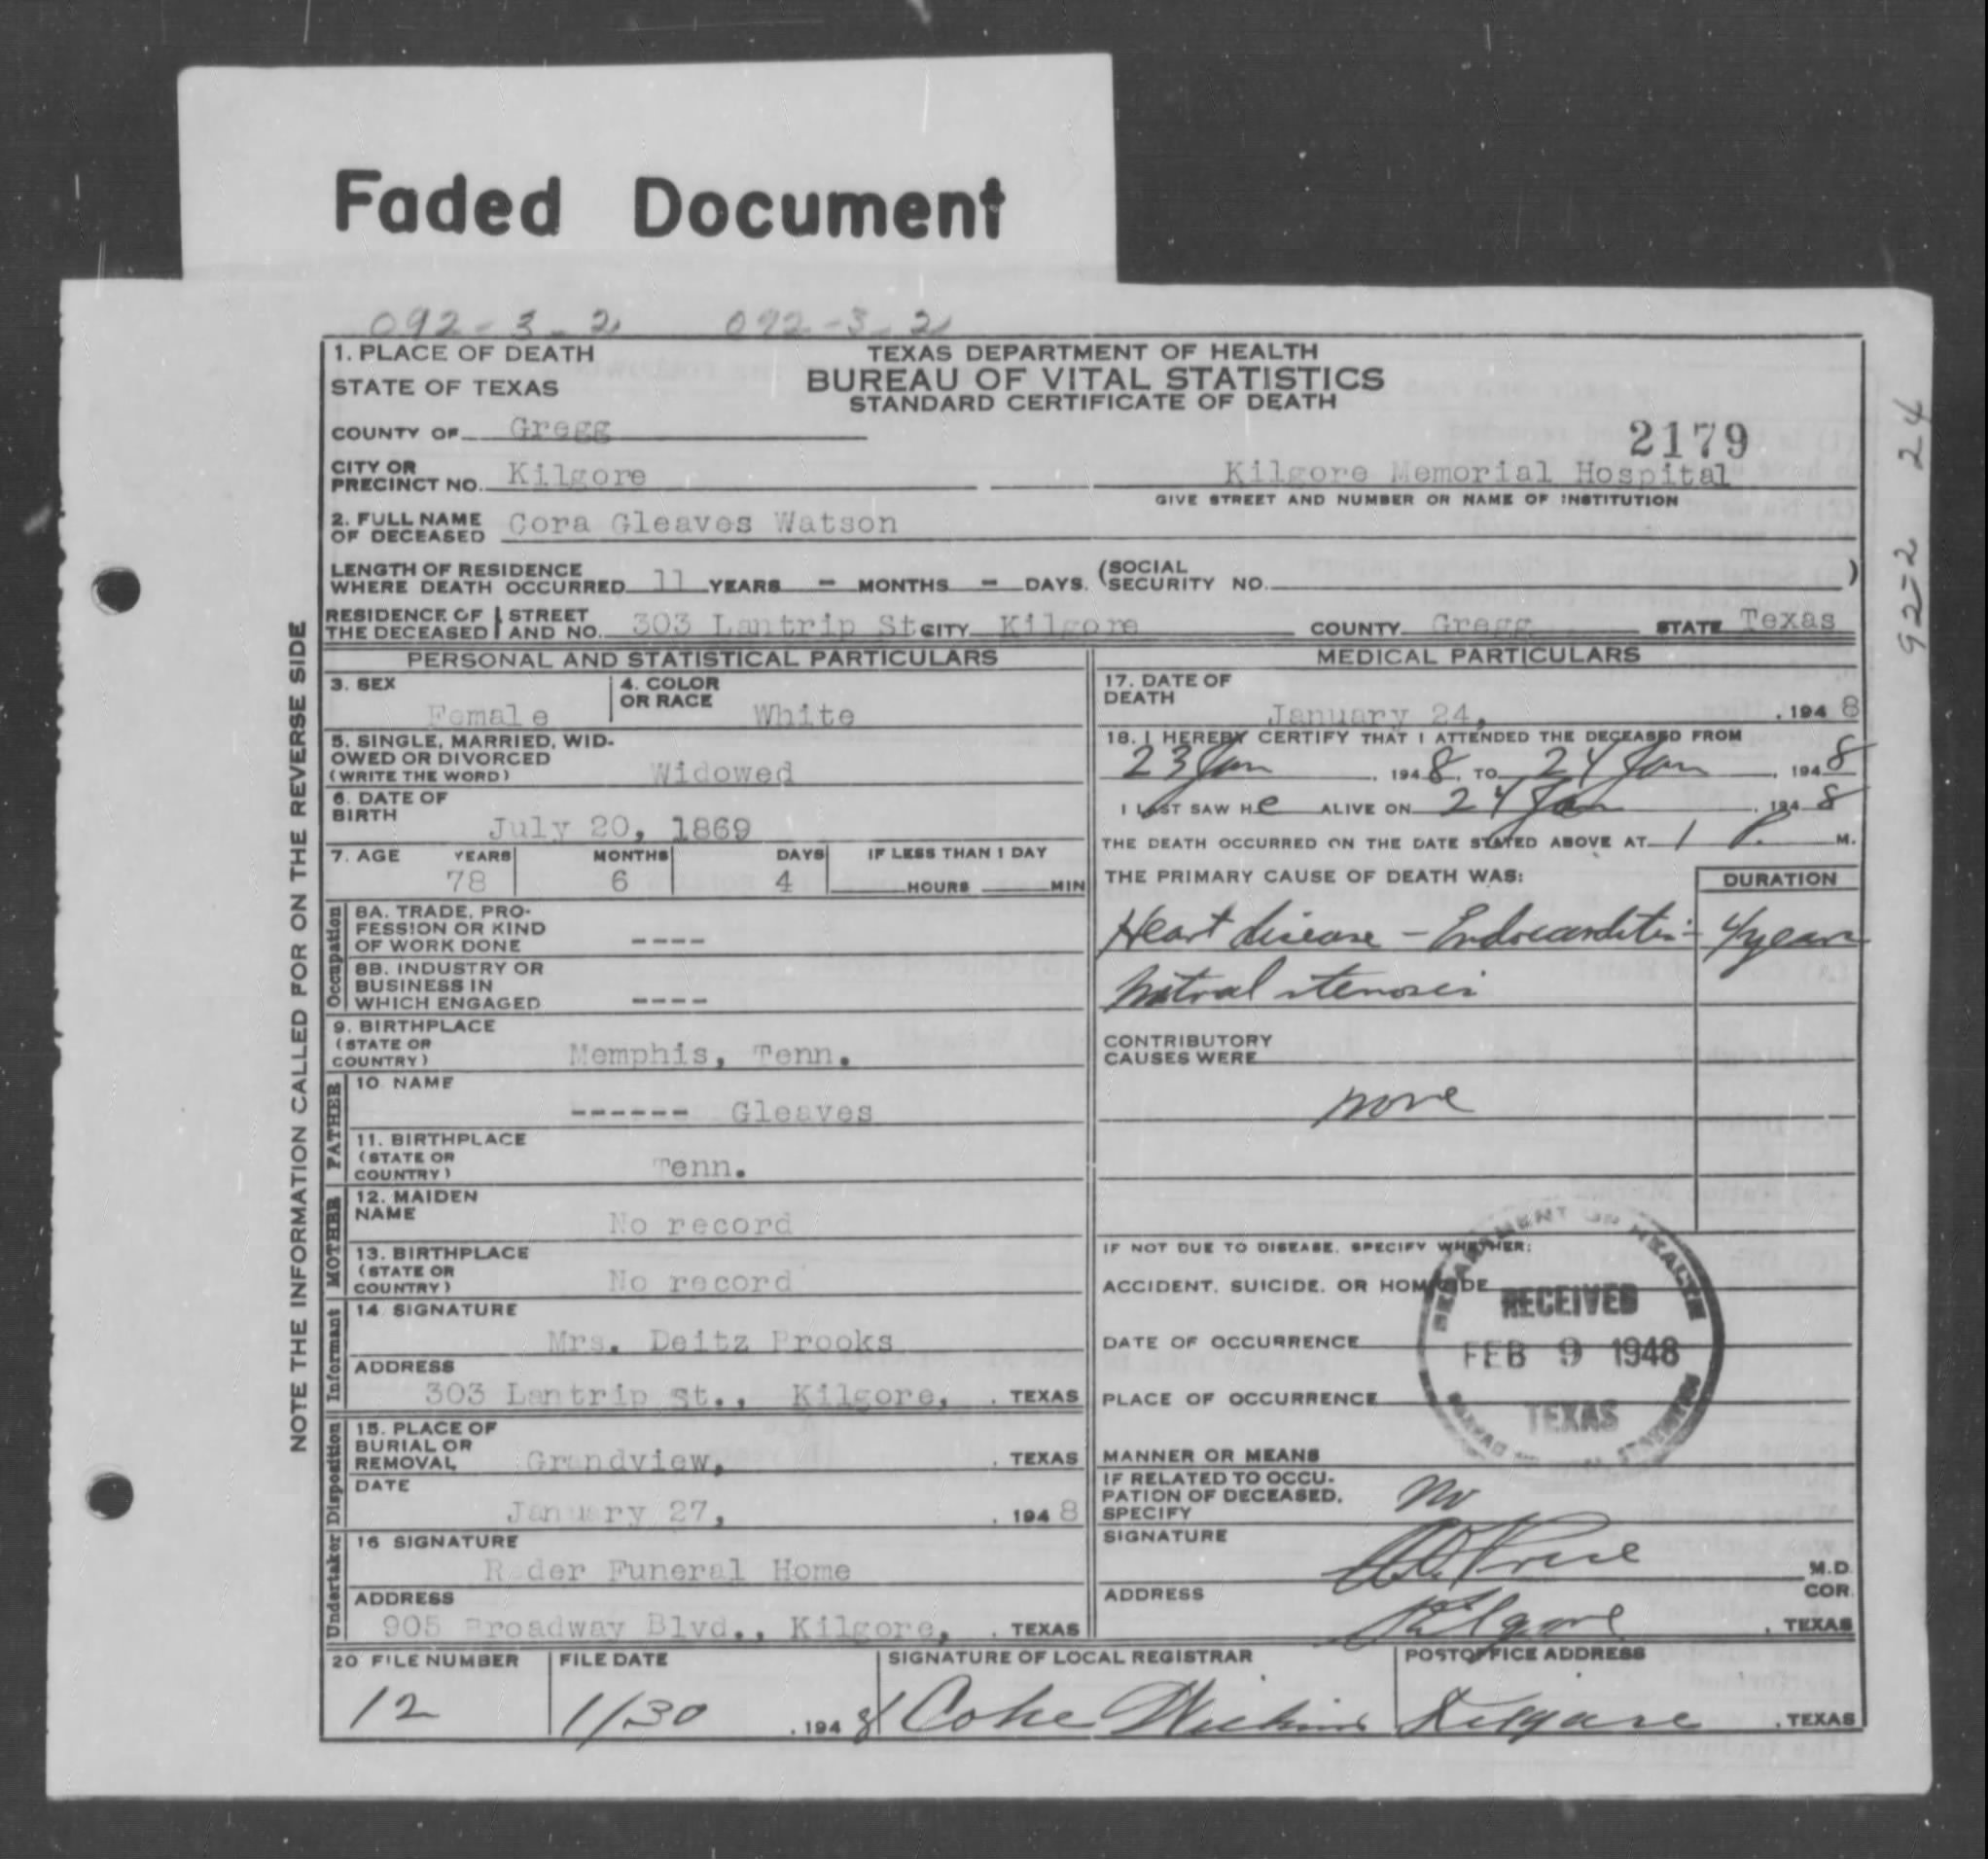 Faded Document
092-3-2 092-3-2
1. PLACE OF DEATH
STATE OF TEXAS
TEXAS DEPARTMENT OF HEALTH
BUREAU OF VITAL STATISTICS
STANDARD CERTIFICATE OF DEATH
COUNTY OF Gregg
2179
CITY OR PRECINCT NO. Kilgore
Kilgore Memorial Hospital
GIVE STREET AND NUMBER OR NAME OF INSTITUTION
2. FULL NAME OF DECEASED Cora Gleaves Watson
LENGTH OF RESIDENCE
WHERE DEATH OCCURRED 11 YEARS - MONTHS - DAYS. (SOCIAL SECURITY NO. )
RESIDENCE OF THE DECEASED STREET AND NO. 303 Lantrip St CITY Kilgore COUNTY Gregg STATE Texas
92-2 24
NOTE THE INFORMATION CALLED FOR ON THE REVERSE SIDE
PERSONAL AND STATISTICAL PARTICULARS
3. SEX Female
4. COLOR OR RACE White
5. SINGLE, MARRIED, WID-
OWED OR DIVORCED
(WRITE THE WORD) Widowed
6. DATE OF BIRTH July 20, 1869
7. AGE YEARS MONTHS DAYS IF LESS THAN 1 DAY
78 6 4 HOURS MIN
Occupation
8A. TRADE, PRO-
FESSION OR KIND
OF WORK DONE ----
8B. INDUSTRY OR
BUSINESS IN
WHICH ENGAGED ----
9. BIRTHPLACE
(STATE OR
COUNTRY) Memphis, Tenn.
FATHER
10 NAME ------ Gleaves
11. BIRTHPLACE
(STATE OR
COUNTRY) Tenn.
MOTHER
12. MAIDEN
NAME No record
13. BIRTHPLACE
(STATE OR
COUNTRY) No record
Informant
14 SIGNATURE
Mrs. Deitz Brooks
ADDRESS
303 Lantrip st., Kilgore, . TEXAS
Disposition
15. PLACE OF
BURIAL OR
REMOVAL Grandview, . TEXAS
DATE
January 27, . 194 8
Undertaker
16 SIGNATURE
Rader Funeral Home
ADDRESS
905 Broadway Blvd., Kilgore, . TEXAS
MEDICAL PARTICULARS
17. DATE OF
DEATH January 24, . 194 8
18. I HEREBY CERTIFY THAT I ATTENDED THE DECEASED FROM
23 Jan . 194 8. TO 24 Jan . 194 8
I LAST SAW HE ALIVE ON 24 Jan . 194 8
THE DEATH OCCURRED ON THE DATE STATED ABOVE AT 1 P. M.
THE PRIMARY CAUSE OF DEATH WAS: DURATION
Heart disease - Endocarditis - 4 years
Mitral stenosis
CONTRIBUTORY
CAUSES WERE
none
IF NOT DUE TO DISEASE, SPECIFY WHETHER:
ACCIDENT, SUICIDE, OR HOMICIDE
DATE OF OCCURRENCE
PLACE OF OCCURRENCE
MANNER OR MEANS
DEPARTMENT OF HEALTH
RECEIVED
FEB 9 1948
TEXAS
IF RELATED TO OCCU-
PATION OF DECEASED,
SPECIFY No
SIGNATURE M.D.
COR.
ADDRESS Kilgore . TEXAS
20 FILE NUMBER FILE DATE SIGNATURE OF LOCAL REGISTRAR POSTOFFICE ADDRESS
12 1/30 . 194 8 Coke Kilgore . TEXAS